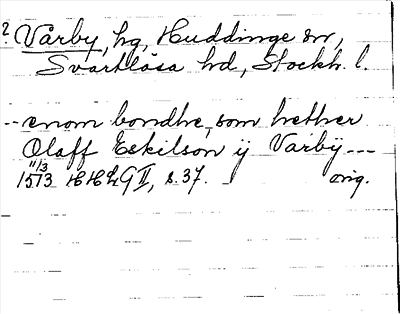 ? Vårby, hg, Huddinge sn,
Svartlösa hd, Stockh. l.
-- enom bondhe, som hether
Olaff Eskilson ij Varbÿ ---
11/3
1513 HHLG II, s. 37. orig.